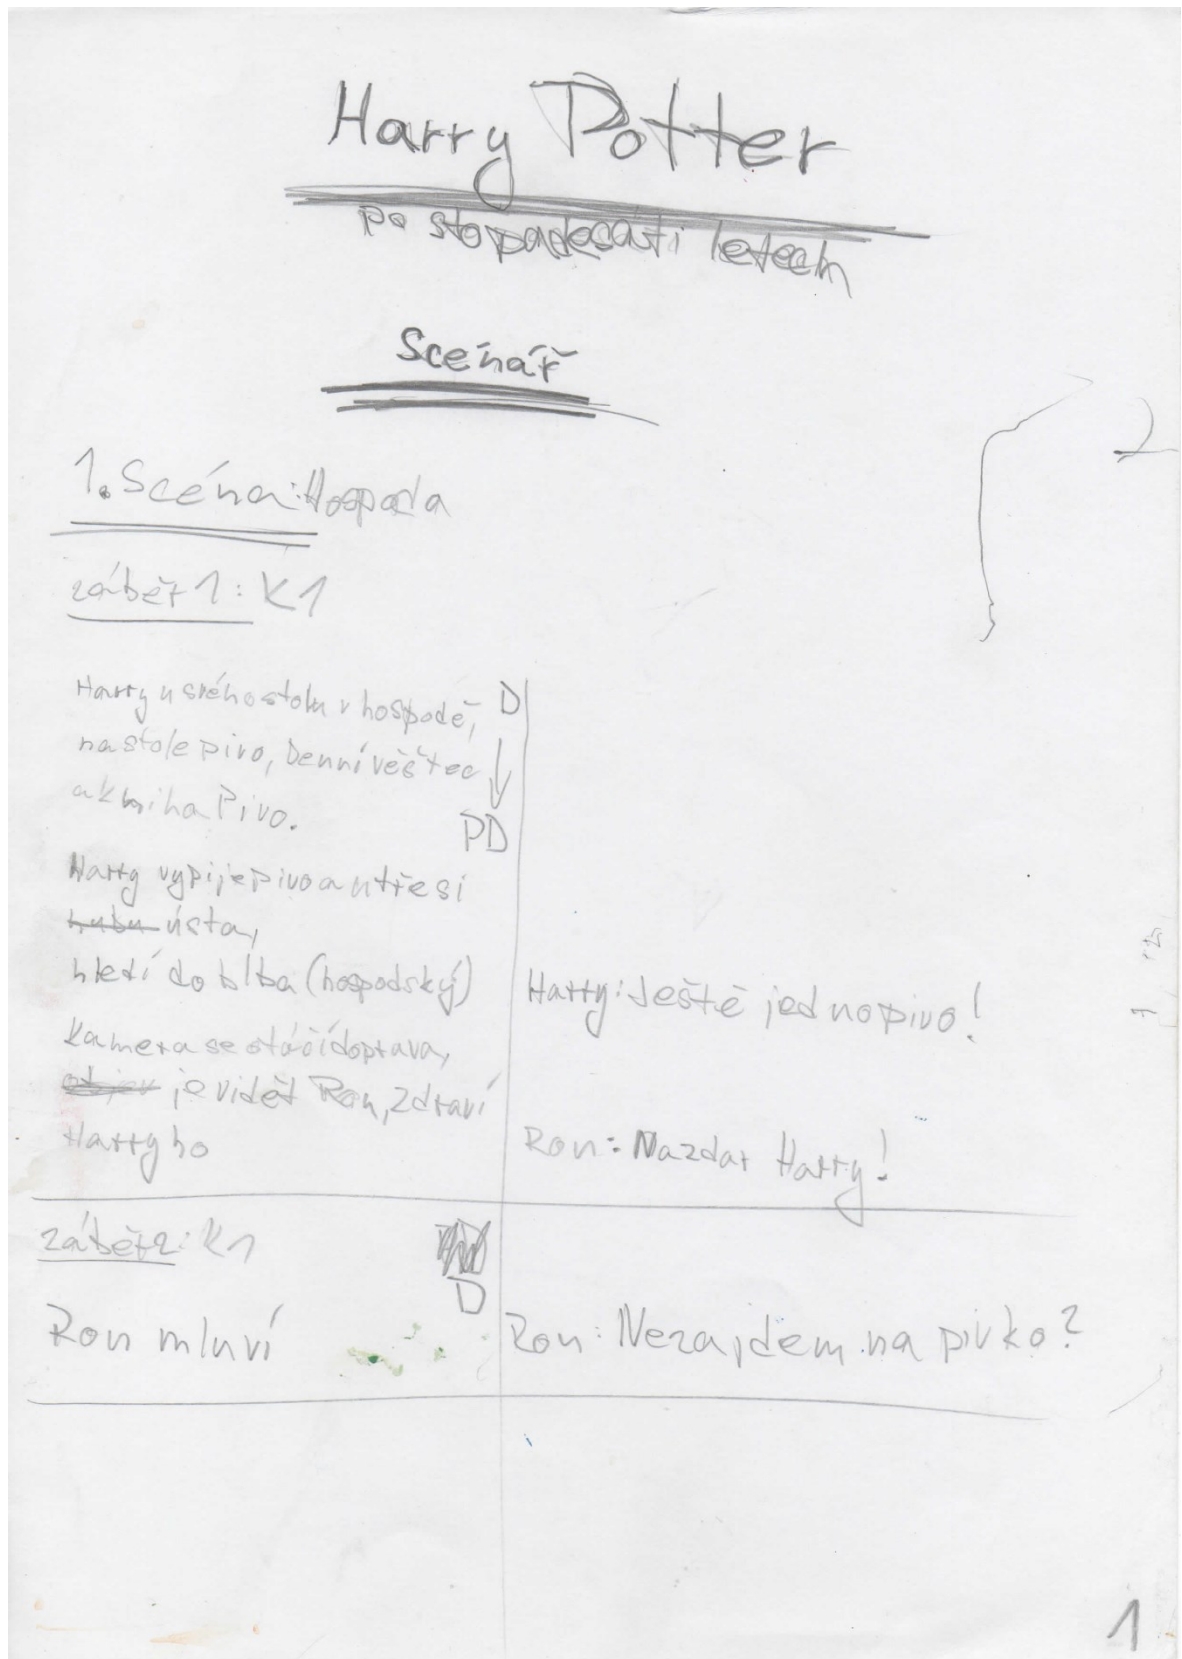 Harry Potter
po stopadesáti letech
Scénář
2
1. Scéna: Hospoda
záběr 1: K1
Harry u svého stolu v hospodě, D
na stole pivo, Denní věštec
a kniha Pivo.
PD
Harry vypije pivo a utře si
hubu ústa,
hledí do blba (hospodský)
Harry: Ještě jedno pivo!
Kamera se otáčí doprava,
je vidět Ron, zdraví
Harryho
Ron: Nazdar Harry!
záběr 2: K1
D
Ron mluví
Ron: Nezajdem na pivko?
1